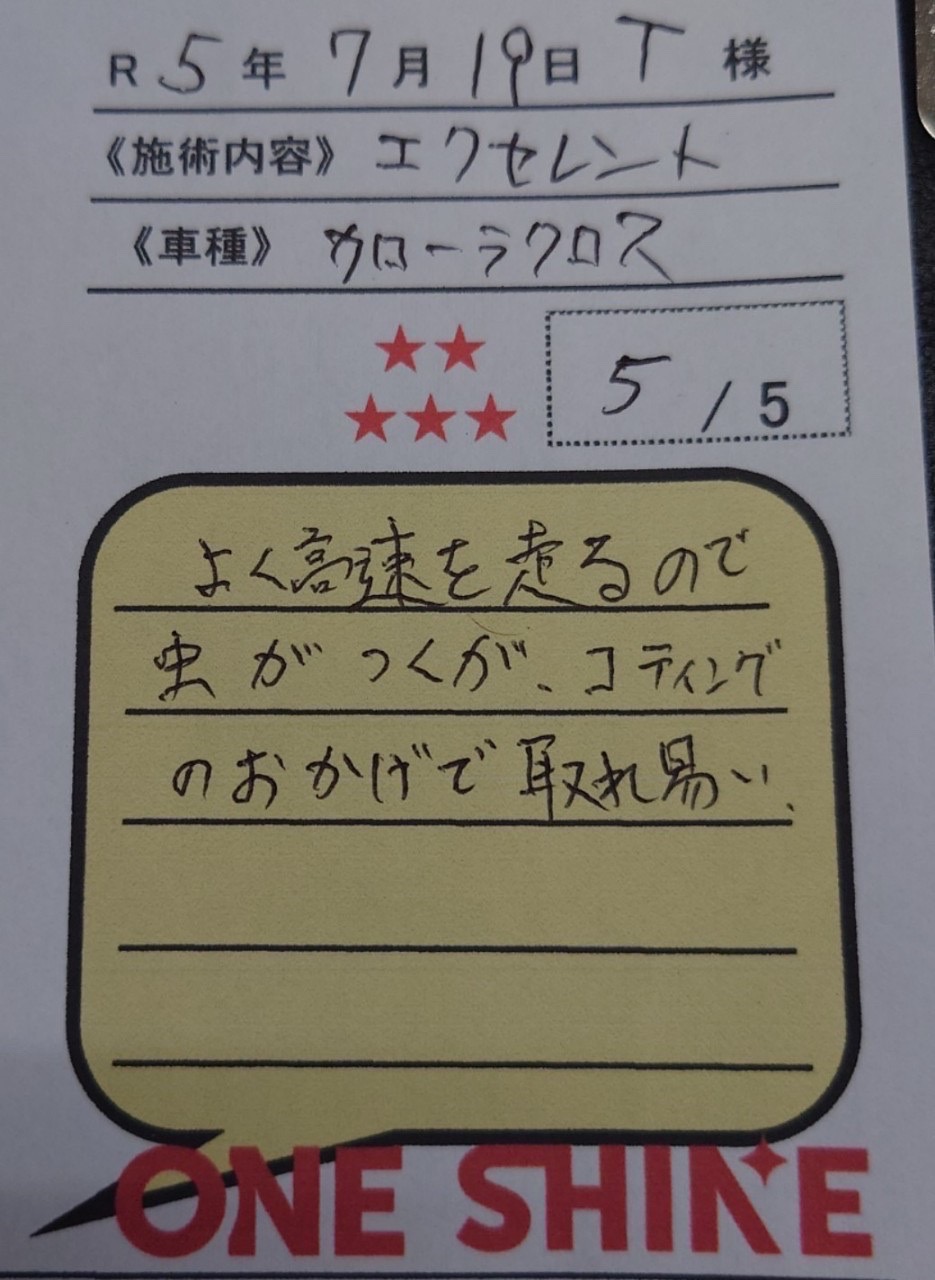 R5年7月19日 T 様
《施術内容》エクセレント
《車種》カローラクロス
★★
★★★
5/5
よく高速を走るので
虫がつくが、コティング
のおかげで取れ易い、
ONE SHINE